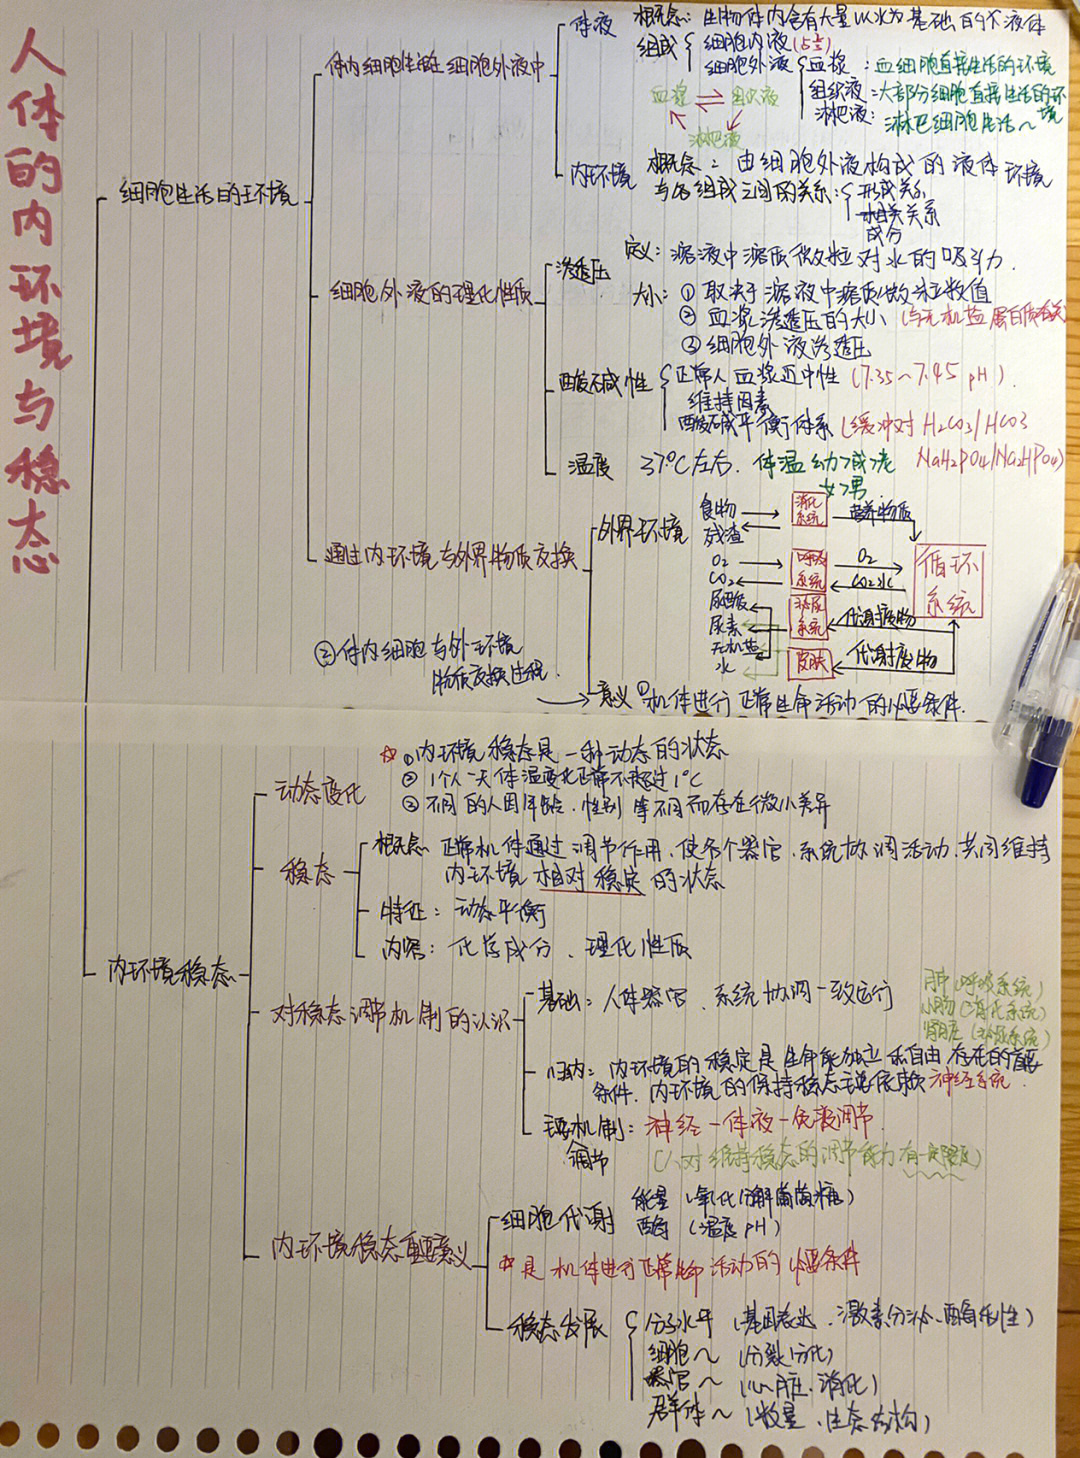 人体的内环境与稳态
细胞生活的环境
体内细胞生活在细胞外液中
体液
概念：生物体内含有大量以水为基础的液体
组成
细胞内液(占2/3)
细胞外液
血浆：血细胞直接生活的环境
组织液：大部分细胞直接生活的环境
淋巴液：淋巴细胞生活~
血浆 ⇌ 组织液
淋巴液
内环境
概念：由细胞外液构成的液体环境
与各组成之间的关系：
形成关系
相关关系
成分
细胞外液的理化性质
渗透压
定义：溶液中溶质微粒对水的吸引力.
大小：① 取决于溶液中溶质微粒数值
② 血浆渗透压的大小 (与无机盐 蛋白质有关)
③ 细胞外液渗透压
酸碱性
正常人血浆近中性 (7.35～7.45 pH).
维持因素
酸碱平衡体系 (缓冲对 H₂CO₃/HCO3
NaH₂PO₄/Na₂HPO₄)
温度 37℃左右. 体温 幼>成>老
女>男
通过内环境与外界物质交换
外界环境
食物
残渣
消化系统
营养物质
循环系统
O₂
CO₂
呼吸系统
O₂
CO₂ 水
尿酸
尿素
无机盐
水
泌尿系统
代谢废物
皮肤
代谢废物
②体内细胞与外环境
物质交换过程.
意义 ①机体进行正常生命活动的必要条件.
内环境稳态
动态变化
☆ ①内环境稳态是一种动态的状态
② 1个人一天体温变化正常不超过1℃
③ 不同的人因年龄、性别等不同而存在微小差异
稳态
概念：正常机体通过调节作用，使各个器官、系统协调活动，共同维持
内环境相对稳定的状态
特征：动态平衡
内容：化学成分、理化性质
对稳态调节机制的认识
基础：人体器官、系统协调一致运行
肺(呼吸系统)
小肠(消化系统)
肾脏(泌尿系统)
归纳：内环境的稳定是生命能独立和自由存在的首要
条件. 内环境的保持稳态主要依赖神经系统.
主要机制：神经—体液—免疫调节
调节
(人对维持稳态的调节能力有一定限度)
内环境稳态重要意义
细胞代谢
能量 (氧化分解葡萄糖)
酶 (温度 pH)
是机体进行正常生命活动的必要条件
稳态发展
分子水平 (基因表达、激素分泌、酶活性)
细胞~ (分裂分化)
器官~ (心脏、消化)
群体~ (数量、生态结构)